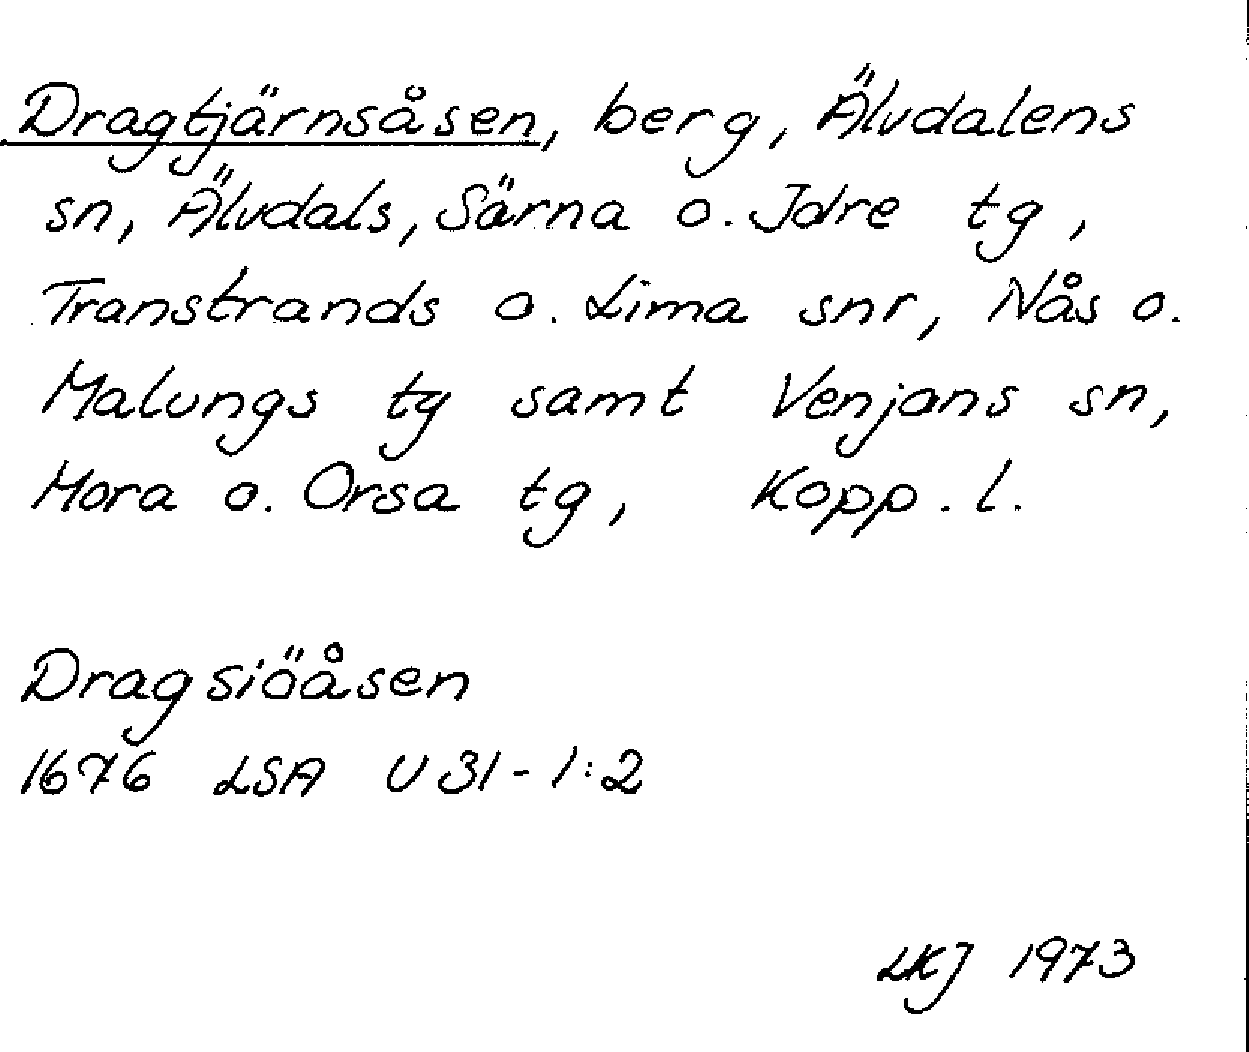 Dragtjärnsåsen, berg, Älvdalens
sn, Älvdals, Särna o. Idre tg,
Transtrands o. Lima snr, Nås o.
Malungs tg samt Venjans sn,
Mora o. Orsa tg, Kopp. l.
Dragsiöåsen
1676 LSA U 31 - 1:2
LKJ 1973